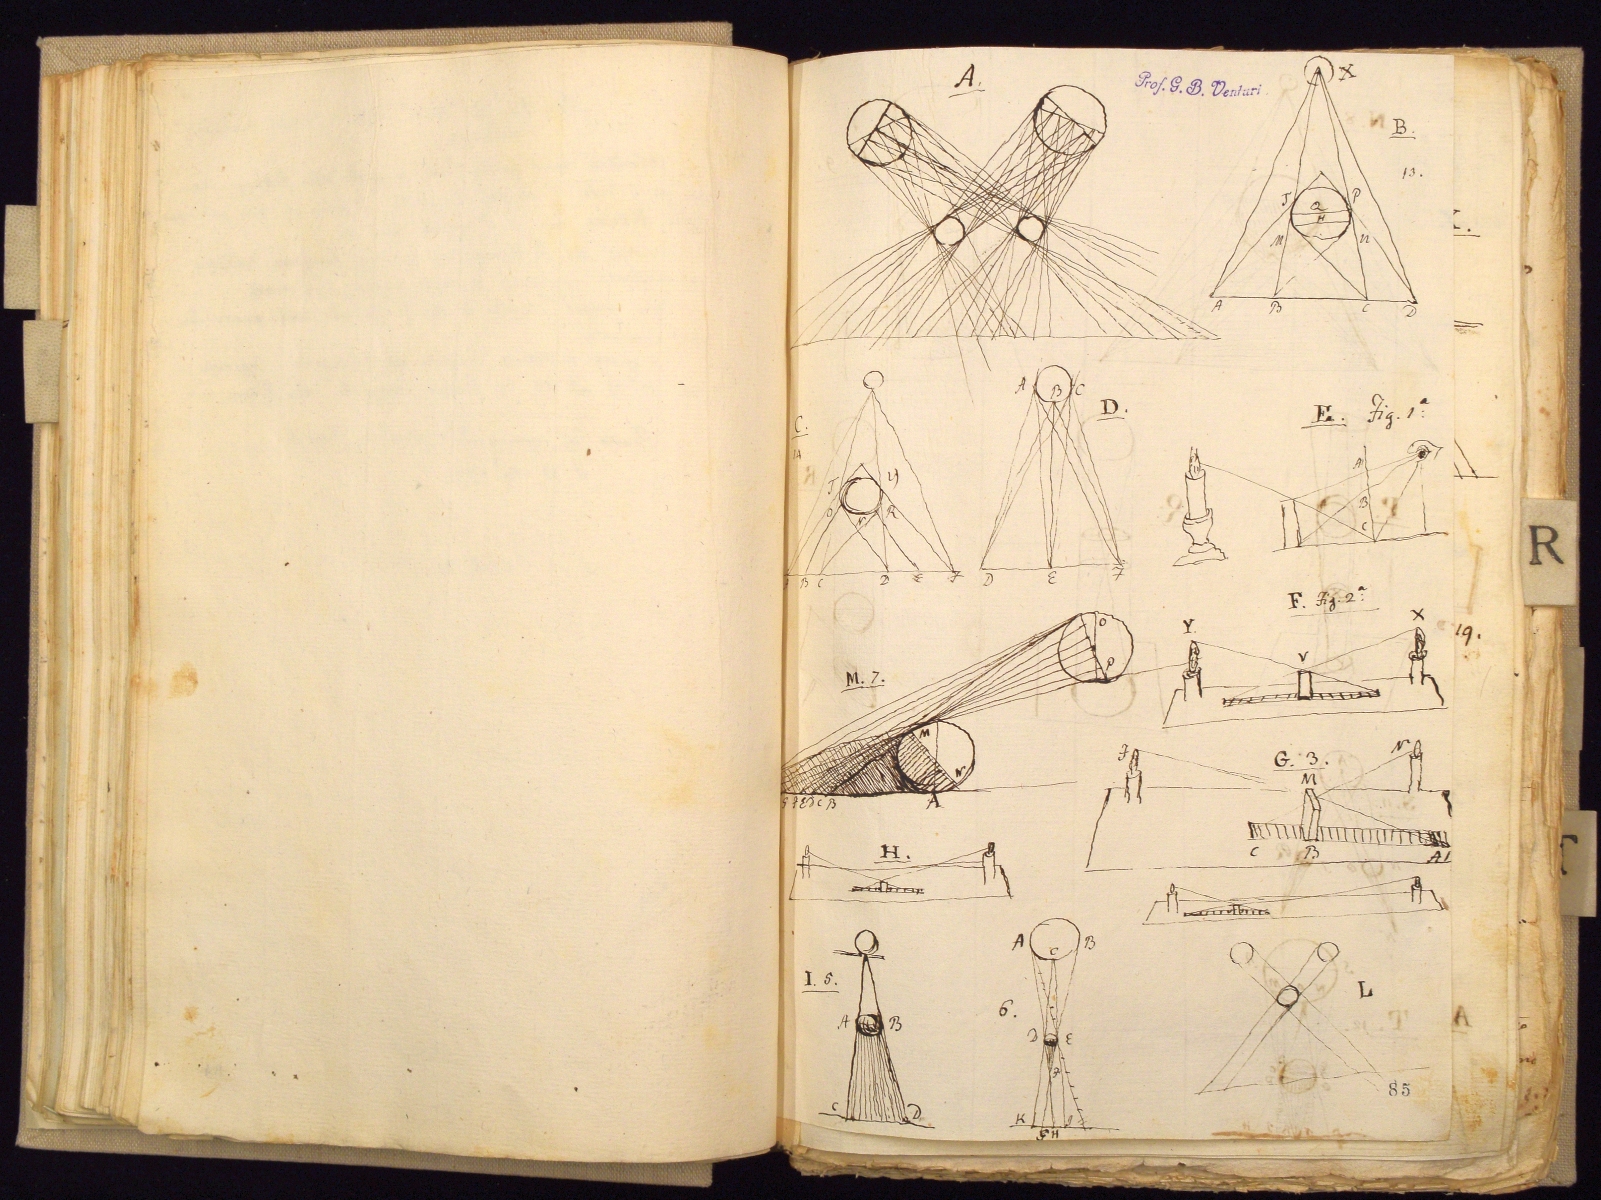 A.
Prof. G. B. Venturi
X
B.
13.
P
Q
M
n
A B C D
A B C
D.
C.
14
E. Fig. 1ª
A
B
C
B C D E F
D E F
F. Fig. 2ª
Y
V
X
19.
O
P
M. 7.
M
N
A
G. 3.
F
N
M
C B A
H.
I. 5.
A B
C D
A C B
6.
D E
F
K G H
L
85
R
T